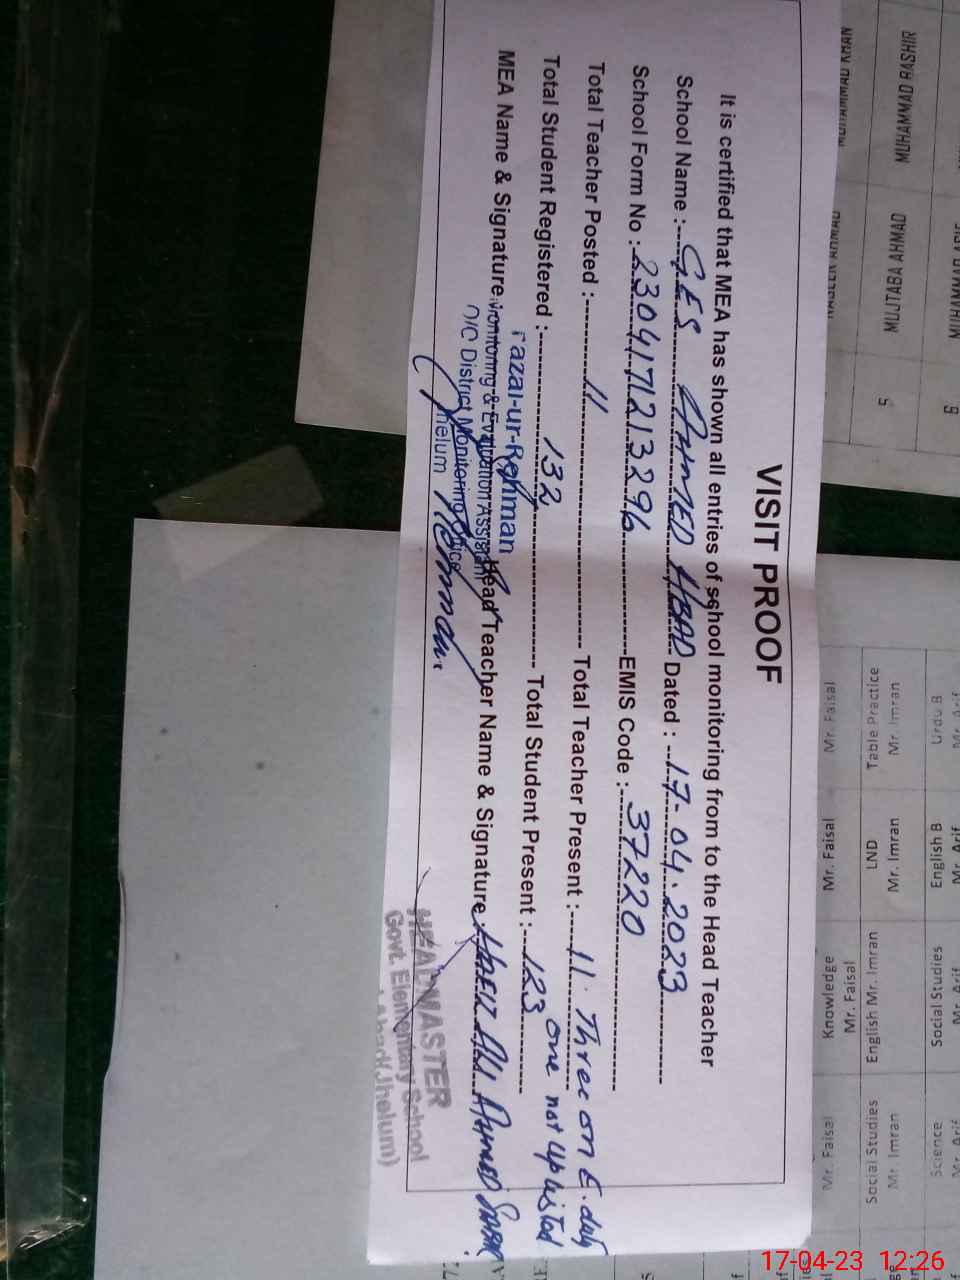 VISIT PROOF
It is certified that MEA has shown all entries of school monitoring from to the Head Teacher
School Name : GES AHMED ABAD Dated : 17-04-2023
School Form No : 2304171213296 EMIS Code : 37220
Total Teacher Posted : 11 Total Teacher Present : 11. Three on E. duty
one not Uplisted
Total Student Registered : 132 Total Student Present : 123
MEA Name & Signature Head Teacher Name & Signature
azal-ur-Rehman
Monitoring & Evaluation Assistant
O/C District Monitoring Office
Jhelum
Rehman
HEADMASTER
Govt. Elementary School
Abad (Jhelum)
MUHAMMAD BASHIR
MUJTABA AHMAD
5
Mr. Faisal
Mr. Faisal
Knowledge
Mr. Faisal
Mr. Faisal
Table Practice
Mr. Imran
LND
Mr. Imran
English Mr. Imran
Social Studies
Mr Imran
Urdu B
English B
Social Studies
Science
17-04-23 12:26